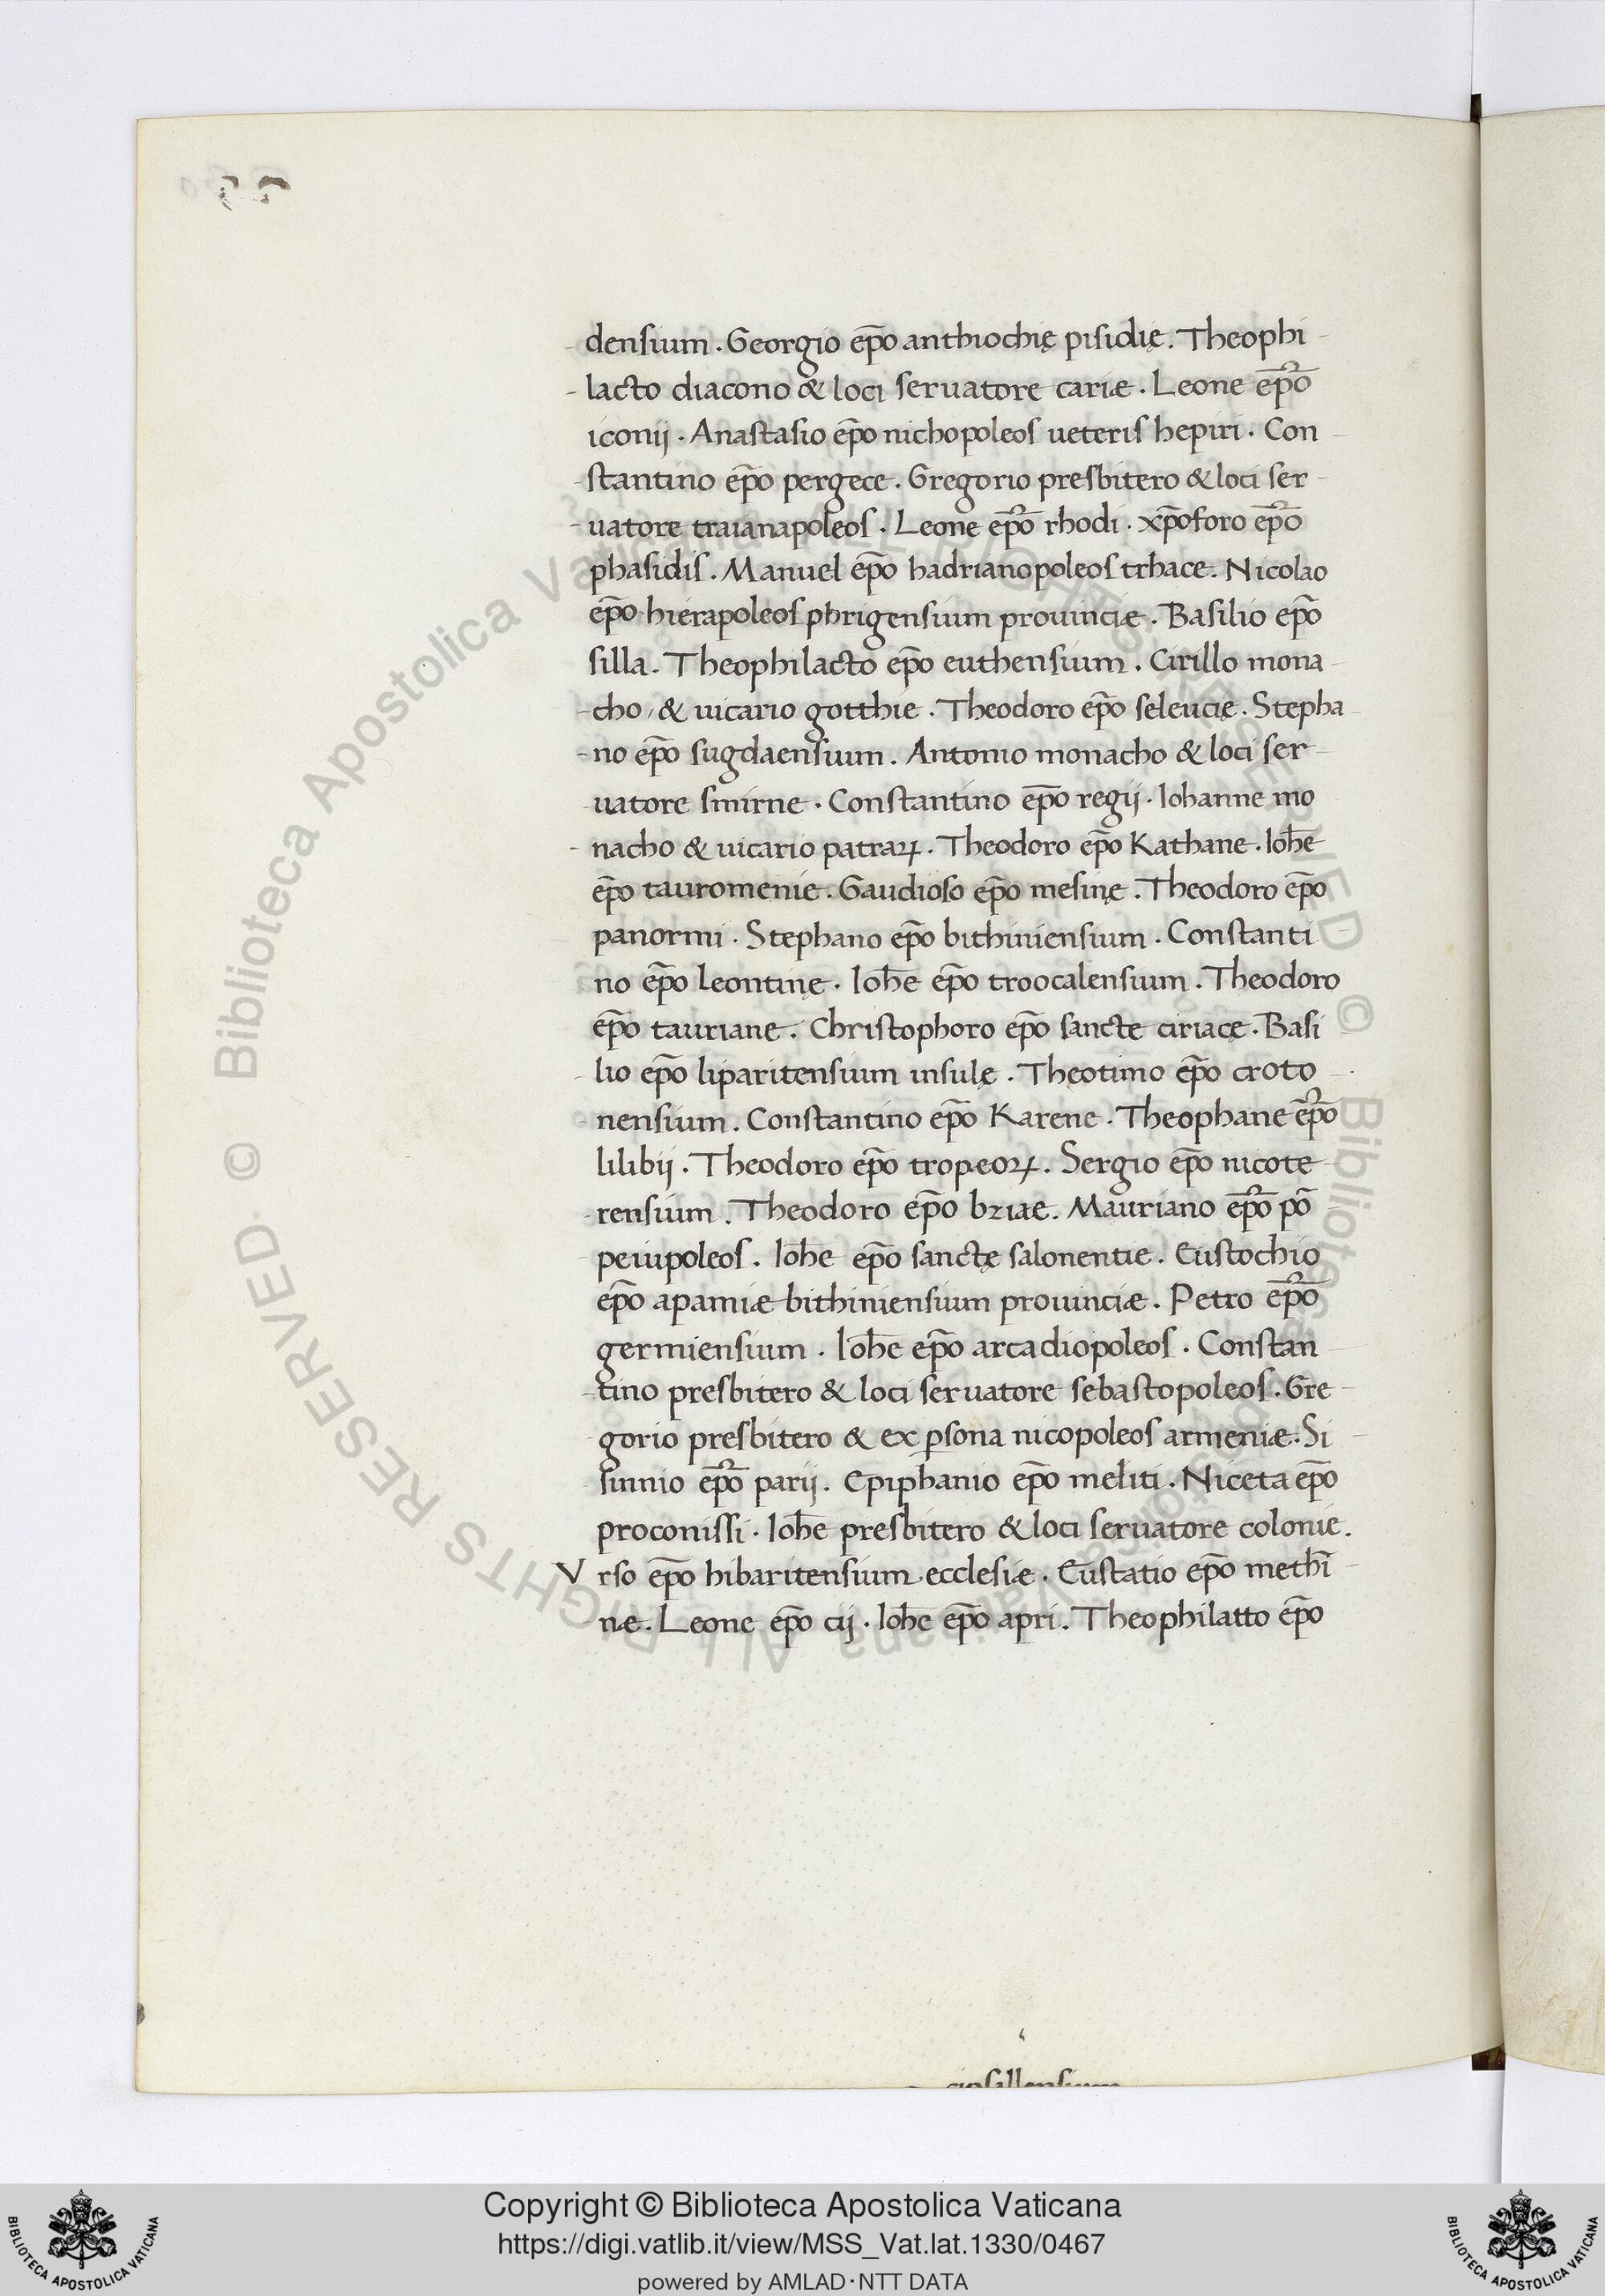 densium . Georgio ep̄o anthiochię pisidię . Theophi
lacto diacono & loci seruatore cariæ . Leone ep̄o
iconij . Anastasio ep̄o nichopoleos ueteris hepiri . Con
stantino ep̄o pergece . Gregorio presbitero & loci ser
uatore traianapoleos . Leone ep̄o rhodi . xp̄oforo ep̄o
phasidis . Manuel ep̄o hadrianopoleos trhace . Nicolao
ep̄o hierapoleos phrigensium prouinciæ . Basilio ep̄o
silla . Theophilacto ep̄o euthensium . Cirillo mona
cho , & uicario gotthie . Theodoro ep̄o seleucię . Stepha
no ep̄o sugdaensium . Antonio monacho & loci ser
uatore smirne . Constantino ep̄o regij . Iohanne mo
nacho & uicario patraꝝ . Theodoro ep̄o Kathane . Ioh̄e
ep̄o tauromenie . Gaudioso ep̄o mesinę . Theodoro ep̄o
panormi . Stephano ep̄o bithiniensium . Constanti
no ep̄o leontinę . Ioh̄e ep̄o troocalensium . Theodoro
ep̄o tauriane . Christophoro ep̄o sancte ciriacę . Basi
lio ep̄o liparitensium insulę . Theotimo ep̄o croto
nensium . Constantino ep̄o Karene . Theophane ep̄o
lilibij . Theodoro ep̄o tropeoꝝ . Sergio ep̄o nicote
rensium . Theodoro ep̄o bziae . Mauriano ep̄o pō
peiupoleos . Ioh̄e ep̄o sanctę salonentie . Eustochio
ep̄o apamiæ bithiniensium prouinciæ . Petro ep̄o
germiensium . Ioh̄e ep̄o arcadiopoleos . Constan
tino presbitero & loci seruatore sebastopoleos . Gre
gorio presbitero & ex ꝑsona nicopoleos armeniæ . Si
sinnio ep̄o parij . Epiphanio ep̄o meliti . Niceta ep̄o
proconissi . Ioh̄e presbitero & loci seruatore colonie .
Vrso ep̄o hibaritensium ecclesiæ . Eustatio ep̄o methī
næ . Leone ep̄o cij . Ioh̄e ep̄o apri . Theophilatto ep̄o
© Biblioteca Apostolica Vaticana ALL RIGHTS RESERVED
Copyright © Biblioteca Apostolica Vaticana
https://digi.vatlib.it/view/MSS_Vat.lat.1330/0467
powered by AMLAD·NTT DATA
BIBLIOTECA APOSTOLICA VATICANA
BIBLIOTECA APOSTOLICA VATICANA